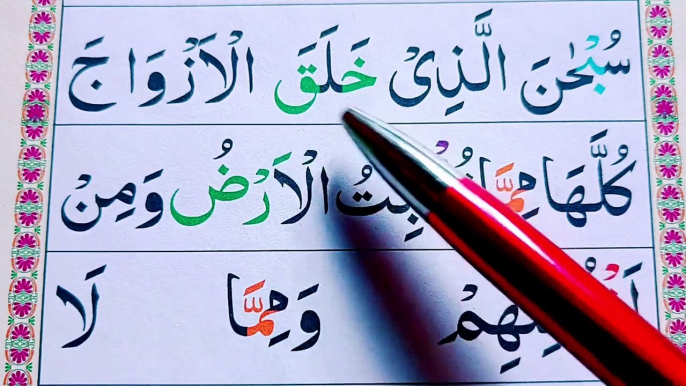 سُبْحٰنَ الَّذِیْ خَلَقَ الْاَزْوَاجَ
كُلَّهَا مِمَّا الْاَرْضُ وَمِنْ
وَمِمَّا لَا